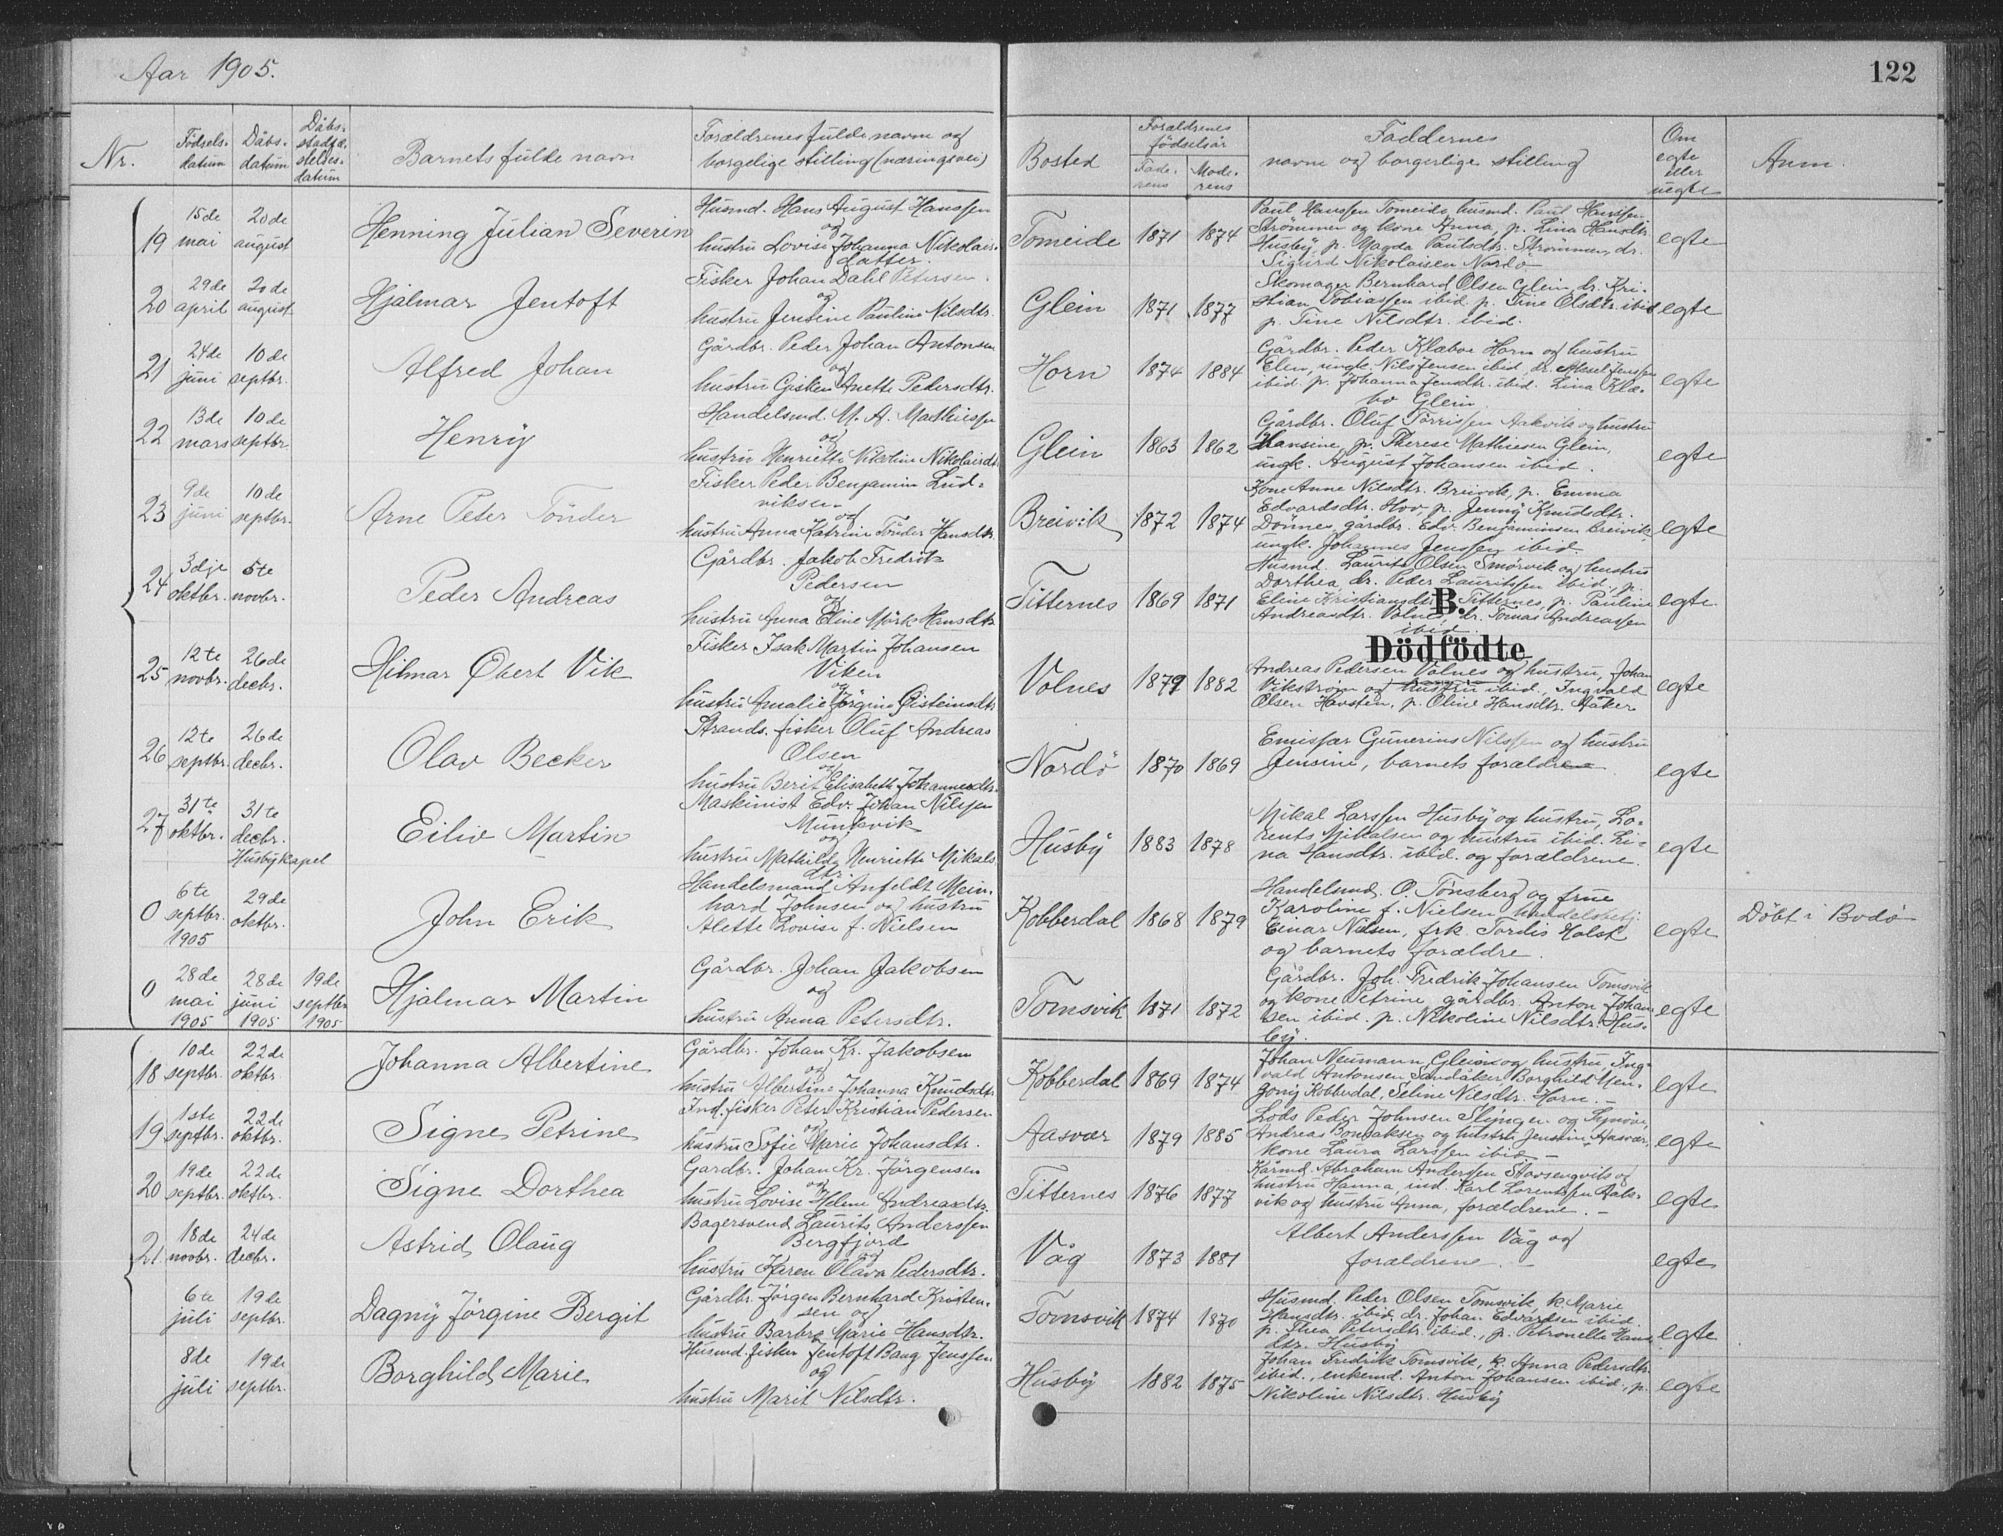 Aar 1905.
122
Nr.
Födsels-
datum
Dåbs-
datum
Dåbs-
stadfæ-
stelses-
datum
Barnets fulde navn
Forældrenes fulde navne og
borgelige stilling (næringsvei)
Bosted
Forældrenes
fødselsår
Fade-
rens
Mode-
rens
Faddernes
navne og borgerlige stilling
Om
egte
eller
uegte
Anm.
19
15de
mai
20de
august
Henning Julian Severin
Husmd. Hans August Hanssen
og
hustru Lovise Johanna Nikolais-
datter.
Tomeide
1871
1874
Paul Hanssen Tomeide, husmd. Paul Hanssen
Strömmen og kone Anna, p. Lina Hansdtr.
Husbÿ, p. Magda Paulsdtr. Strömmen, dr.
Sigurd Nikolaisen Nordö
egte
20
29de
april
20de
august
Hjalmar Jentoft
Fisker Johan Dahl Petersen
og
hustru Jensine Pauline Nilsdtr.
Glein
1871
1877
Skomager Bernhard Olsen Glein, dr. Kri-
stian Tobiassen ibid. p. Tine Olsdtr. ibid
p. Tine Nilsdtr. ibid.
egte
21
24de
juni
10de
septbr.
Alfred Johan
Gårdbr. Peder Johan Antonsen
og
hustru Gisken Anette Pedersdtr.
Horn
1874
1884
Gårdbr. Peder Klæboe Horn og hustru
Elen, ungk. Nils Jensen ibid, dr. Aksel Jenssen
ibid. p. Johanna Jensdtr. ibid. Lina Klæ-
bo Glein
egte
22
13de
mars
10de
septbr.
Henrÿ
Handelsmd. M. A. Mathiessen
og
hustru Henriette Nikoline Nikolaisdtr.
Glein
1863
1862
Gårdbr. Oluf Torrissen Aakvik og hustru
Hansine, p. Therese Mathiesen Glein,
ungk. August Johansen ibid.
egte
23
9de
juni
10de
septbr.
Arne Peter Tönder
Fisker Peder Benjamin Lud-
viksen
og
hustru Anna Katrine Tönder Hansdtr.
Breivik
1872
1874
Kone Anne Nilsdtr. Breivik, p. Emma
Edvardsdtr. Hov, p. Jennÿ Knutsdtr.
Dönnes, gårdbr. Edv. Benjaminsen Breivik,
ungk. Johannes Jenssen ibid.
egte
24
3dje
oktbr.
5te
novbr.
Peder Andreas
Gårdbr. Jakob Fredrik
Pedersen
og
hustru Anna Eline Mörk Hansdtr.
Titternes
1869
1871
Husmd. Laurits Olsen Smörvik og hustru
Dorthea, dr. Peder Lauritssen ibid., p.
Eline Kristiansdtr. Titternes, p. Pauline
Andreasdtr. Volnes, dr. Tomas Andreassen
ibid.
egte
B.
Dödfödte
25
12te
novbr.
26de
decbr.
Hilmar Obert Vik
Fisker Isak Martin Johansen
Viken
og
hustru Amalie Jörgine Eisteinsdtr.
Volnes
1879
1882
Andreas Pedersen Volnes og hustru, Johan
Vikström og hustru ibid., Ingvald
Olsen Havsten, p. Oline Hansdtr. Aaker
egte
26
12te
septbr.
26de
decbr.
Olav Becker
Strands. fisker Oluf Andreas
Olsen
og
hustru Berit Elisabeth Johannesdtr.
Nordö
1870
1869
Emissær Gunerius Nilssen og hustru
Jensine, barnets forældre
egte
27
31te
oktbr.
31te
decbr.
Husbÿ kapel
Eiliv Martin
Maskinist Edv. Johan Nilssen
Munkvik
og
hustru Mathilde Henriette Mikals
dtr.
Husbÿ
1883
1878
Mikal Larssen Husbÿ og hustru, Lo-
rents Mikalsen og hustru ibid. Li-
na Hansdtr. ibid. og forældrene.
egte
0
6te
septbr.
1905
29de
oktbr.
John Erik
Handelsmand Anfeldt Mein-
hard Johnsen og hustru
Alette Lovise f. Nielsen
Kobberdal
1868
1879
Handelsmd. O. Tönsberg og frue
Karoline f. Nielsen, handelsbetj.
Einar Nilsen, frk. Tordis Holst
og barnets forældre.
egte
Döbt i Bodö
0
28de
mai
1905
28de
juni
1905
19de
septbr.
1905
Hjalmar Martin
Gårdbr. Johan Jakobsen
og
hustru Anna Petersdtr.
Tomsvik
1871
1872
Gårdbr. Joh. Fredrik Johansen Tomsvik
og kone Petrine, gårdbr. Anton Johan-
sen ibid. p. Nikoline Nilsdtr. Hus-
bÿ.
egte
18
10de
septbr.
22de
oktbr.
Johanna Albertine
Gårdbr. Johan Kr. Jakobsen
og
hustru Albertine Johanna Knudsdtr.
Kobberdal
1869
1874
Johan Neumann Glein og hustru, Ing-
vald Antonsen Sandåker, Borghild Men-
zonÿ Kobberdal, Seline Nilsdtr. Horn. -
egte
19
1ste
septbr.
22de
oktbr.
Signe Petrine
Ind. fisker Peter Kristian Pedersen
og
hustru Sofie Marie Johansdtr.
Aasvær
1879
1885
Lods Peder Johnsen Slÿngen og Synöve,
Andreas Bonsaksen og hustru Jensine Aasvær,
kone Laura Larssen ibid -
egte
20
19de
septbr.
22de
oktbr.
Signe Dorthea
Gårdbr. Johan Kr. Jörgensen
og
hustru Lovise Helene Andreasdtr.
Titternes
1876
1877
Kårmd. Abraham Anderssen Stavsengvik og
hustru Hanna, ind. Karl Lorentssen Aals-
vik og hustru Anna, forældrene. -
egte
21
18de
novbr.
24de
decbr.
Astrid Olaug
Bagersvend Laurits Anderssen
Bergfjord
og
hustru Karen Olava Pedersdtr.
Våg
1873
1881
Albert Anderssen Våg og
forældrene. -
egte
6te
juli
19de
septbr.
Dagnÿ Jörgine Bergit
Gårdbr. Jörgen Bernhard Kristen-
sen og
hustru Barbro Marie Hansdtr.
Tomsvik
1874
1870
Husmd. Peder Olsen Tomsvik, k. Marie
Hansdtr. ibid. dr. Johan Edvardsen ibid.
p. Thea Petersdtr. ibid., p. Petronelle Hans-
dtr. Husbÿ
egte
8de
juli
19de
septbr.
Borghild Marie
Husmd. fisker Jentoft Baug Jenssen
og
hustru Marit Nilsdtr.
Husbÿ
1882
1875
Johan Fredrik Tomsvik, k. Anna Pedersdtr.
ibid., enkemd. Anton Johansen ibid., p.
Nikoline Nilsdtr. Husbÿ
egte